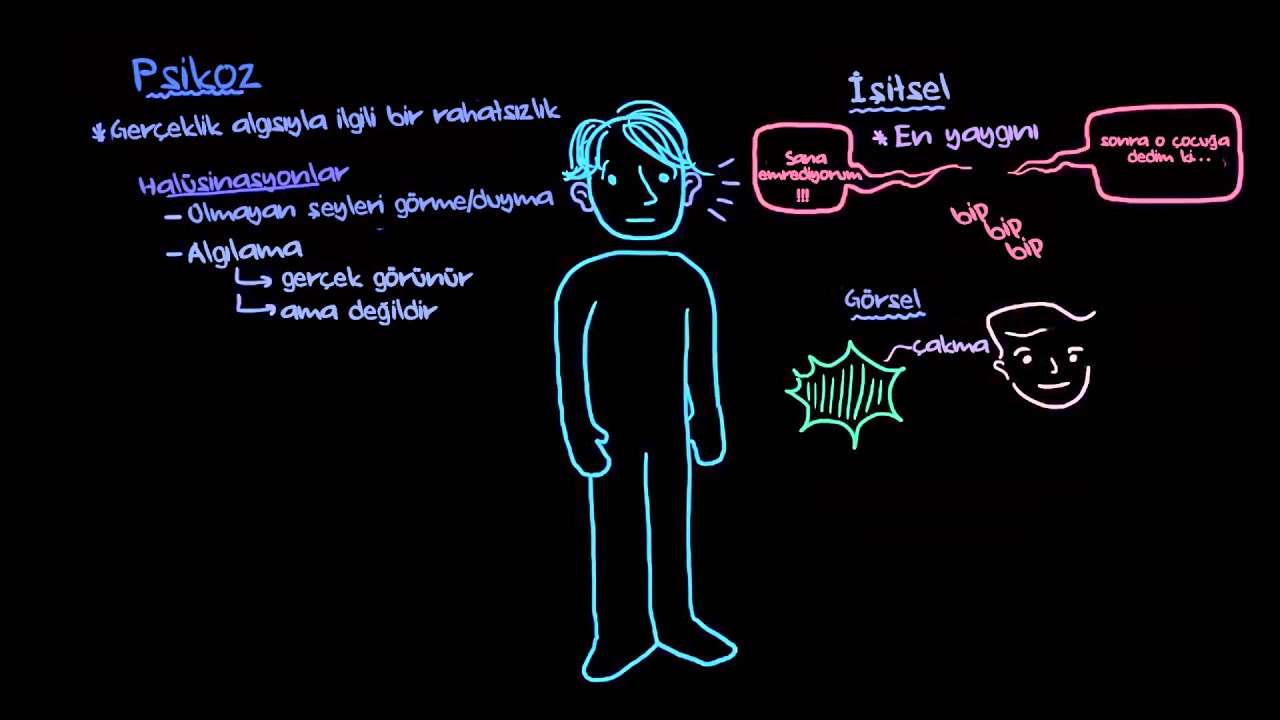 Psikoz
* Gerçeklik algısıyla ilgili bir rahatsızlık
Halüsinasyonlar
- Olmayan şeyleri görme/duyma
- Algılama
↳ gerçek görünür
↳ ama değildir
İşitsel
* En yaygını
Sana
emrediyorum
!!!
sonra o çocuğa
dedim ki...
bip
bip
bip
Görsel
çakma